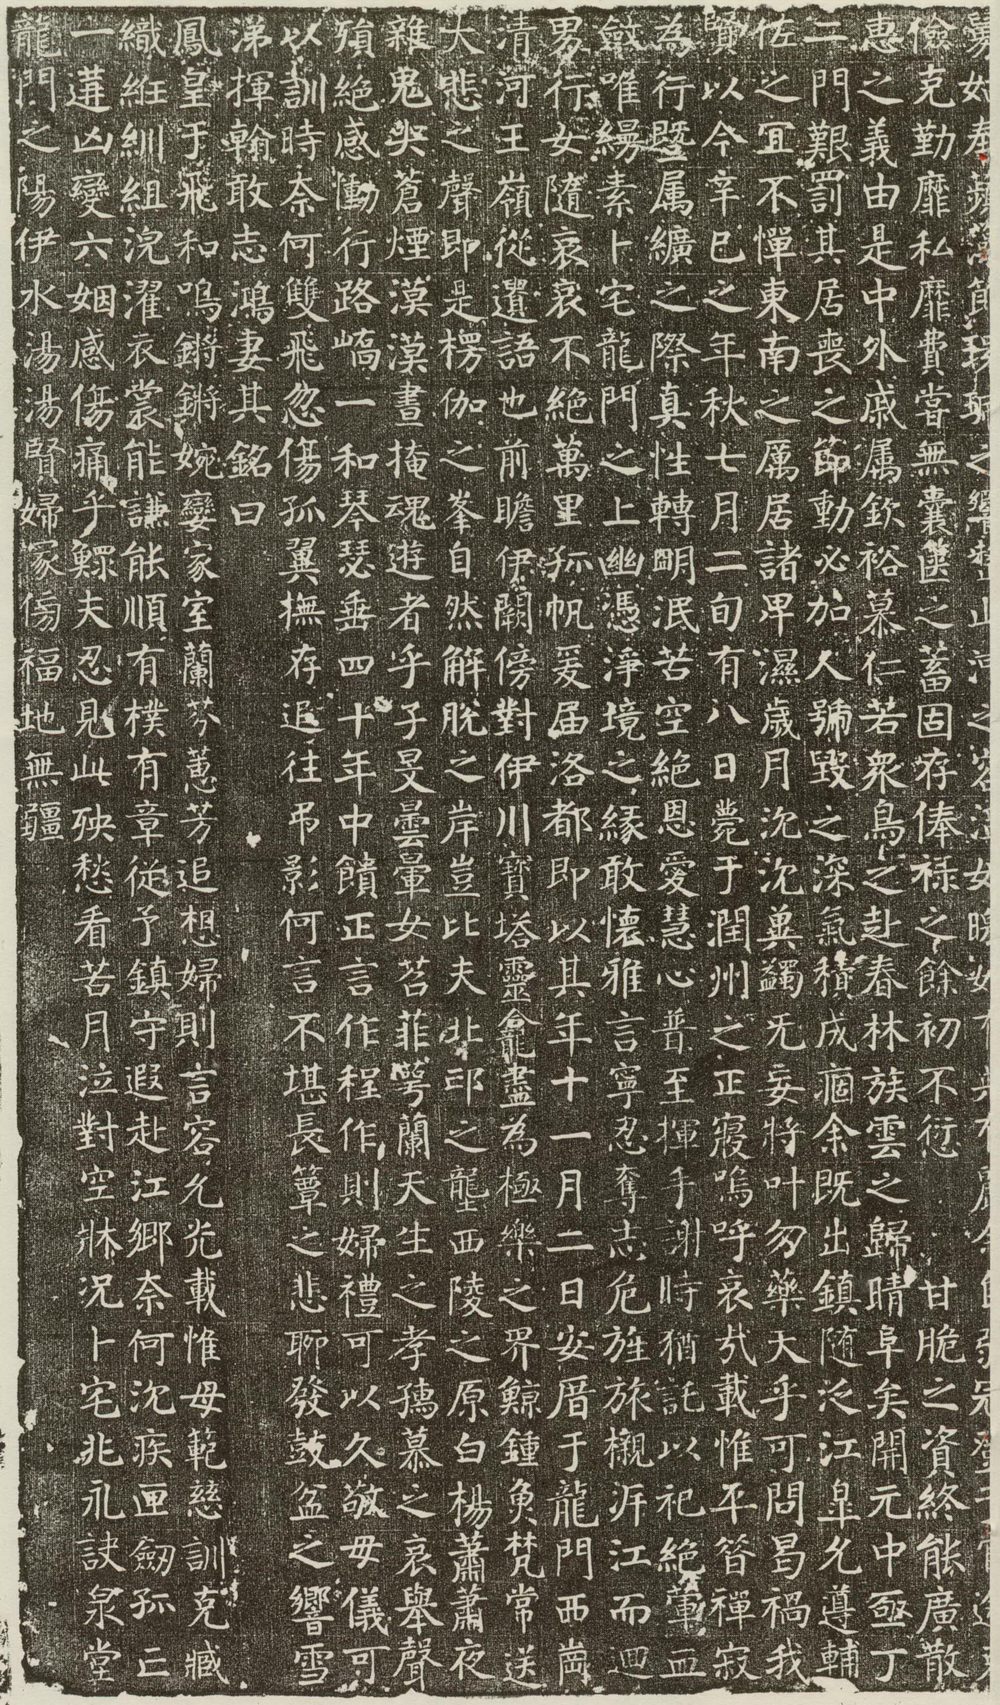 儉克勤靡私靡費嘗無囊篋之蓄固存俸祿之餘初不愆甘脆之資終能廣散
惠之義由是中外戚屬欽裕慕仁若衆鳥之赴春林族雲之歸晴阜矣開元中亟丁
二門艱罰其居喪之節動必加人號毀之深氣積成痼余既出鎮隨泛江皐允遵輔
佐之宜不憚東南之厲居諸卑濕歲月沈沈冀蠲无妄將叶勿藥天乎可問曷禍我
賢以今辛巳之年秋七月二旬有八日薨于潤州之正寢嗚呼哀哉載惟平昔禪寂
為行暨属纊之際真性轉明泯苦空絕恩愛慧心普至揮手謝時猶託以祀絕葷血
斂唯縵素卜宅龍門之上幽憑淨境之緣敢懷雅言寧忍奪志危旌旅櫬泝江而迴
男行女隨哀哀不絕萬里孤帆爰届洛都即以其年十一月二日安厝于龍門西崗
清河王嶺從遺語也前瞻伊闕傍對伊川寶塔靈龕盡為極樂之界鯨鍾魚梵常送
大悲之聲即是楞伽之峯自然解脫之岸豈比夫北邙之壟西陵之原白楊蕭蕭夜
雜鬼哭蒼煙漠漠晝掩魂遊者乎子旻曇暈女苕菲萼蘭天生之孝孺慕之哀舉聲
殞絕感慟行路嶠一和琴瑟垂四十年中饋正言作程作則婦禮可以久敬母儀可
以訓時奈何雙飛忽傷孤翼撫存追往弔影何言不堪長簟之悲聊發鼓盆之響雪
涕揮翰敢志鴻妻其銘曰
鳳皇于飛和鳴鏘鏘婉孌家室蘭芬蕙芳追想婦則言容允光載惟母範慈訓克臧
織紝紃組浣濯衣裳能謙能順有樸有章從予鎮守遐赴江鄉奈何沈疾匣劒孤亡
一遘凶變六姻感傷痛乎鰥夫忍見此殃愁看苦月泣對空牀况卜宅兆永訣泉堂
龍門之陽伊水湯湯賢婦冢傍福地無疆